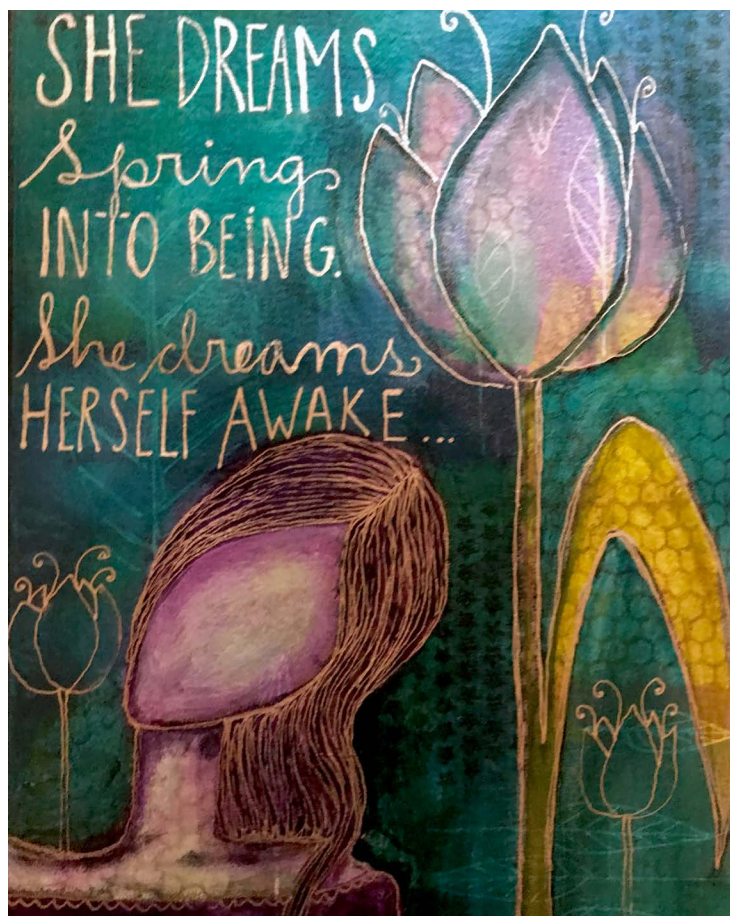 SHE DREAMS
Spring
INTO BEING.
She dreams
HERSELF AWAKE...